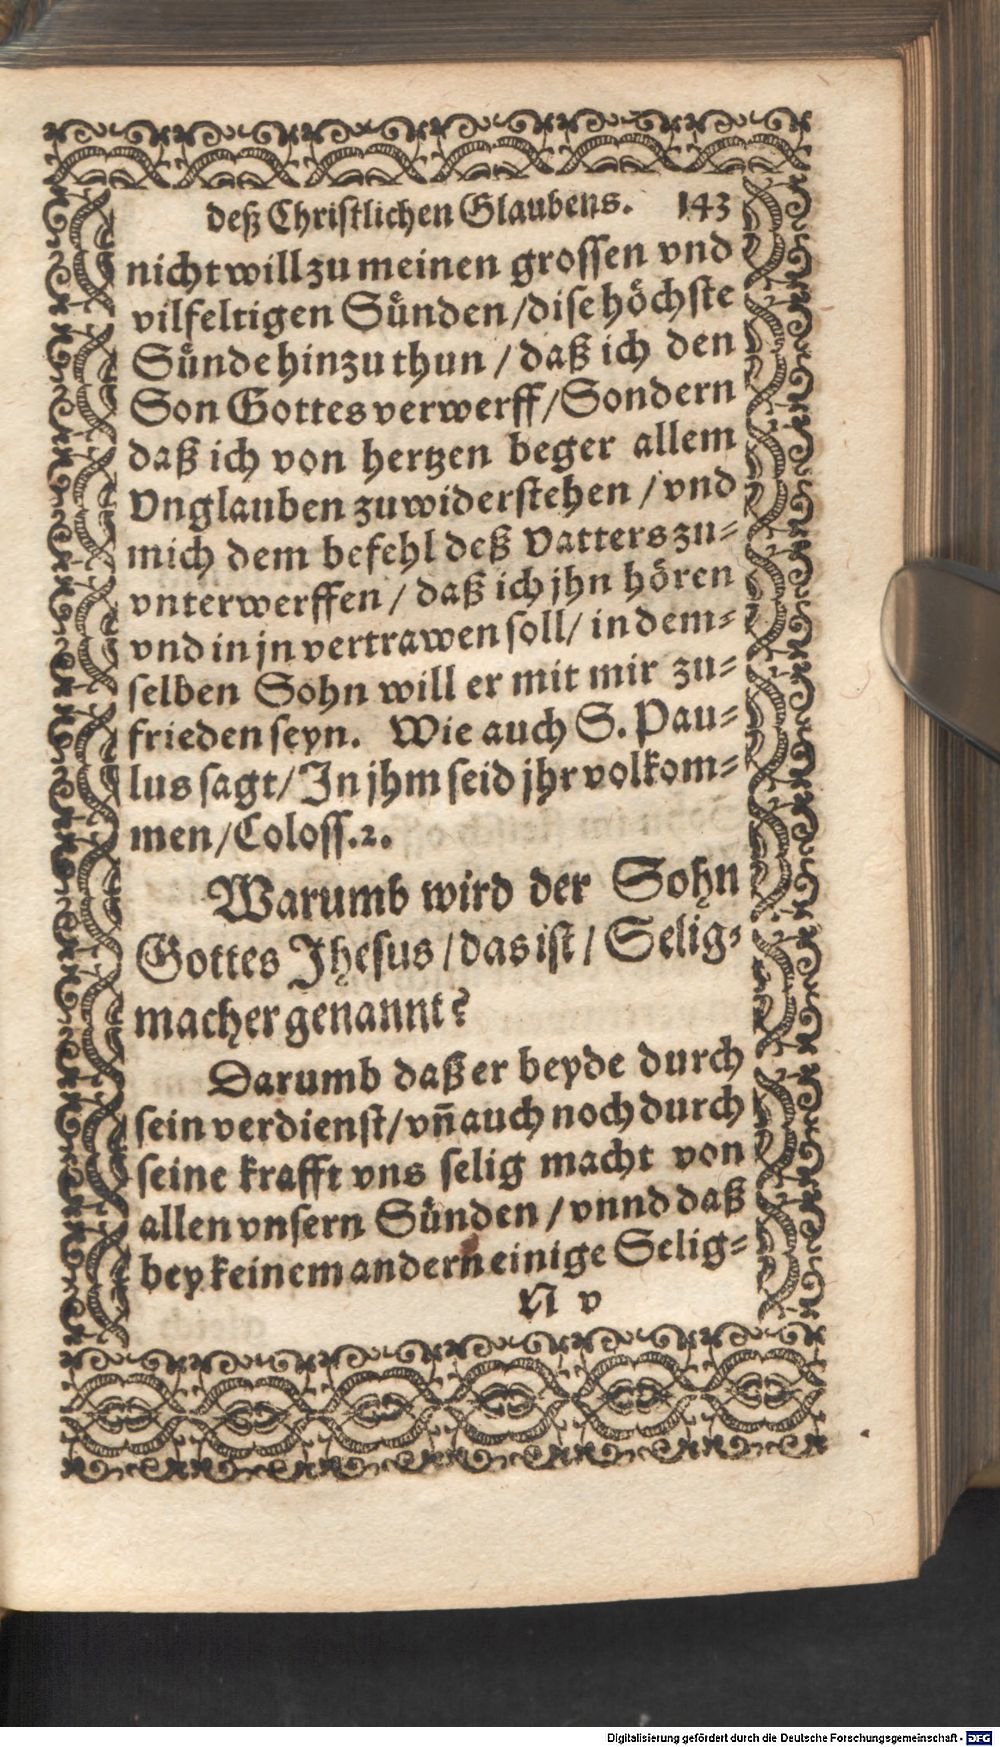 deß Christlichen Glaubens. 143
nicht will zu meinen grossen vnd
vilfeltigen Sünden / dise höchste
Sünde hinzu thun / daß ich den
Son Gottes verwerff / Sondern
daß ich von hertzen beger allem
Vnglauben zuwiderstehen / vnd
mich dem befehl deß Vatters zu⸗
vnterwerffen / daß ich jhn hören
vnd in jn vertrawen soll / in dem⸗
selben Sohn will er mit mir zu⸗
frieden seyn. Wie auch S. Pau⸗
lus sagt / In jhm seid jhr volkom⸗
men / Coloss. 2.
Warumb wird der Sohn
Gottes Jhesus / das ist / Selig⸗
macher genannt?
Darumb daß er beyde durch
sein verdienst / vñ auch noch durch
seine krafft vns selig macht von
allen vnsern Sünden / vnnd daß
bey keinem andern einige Selig⸗
N v
Digitalisierung gefördert durch die Deutsche Forschungsgemeinschaft - DFG